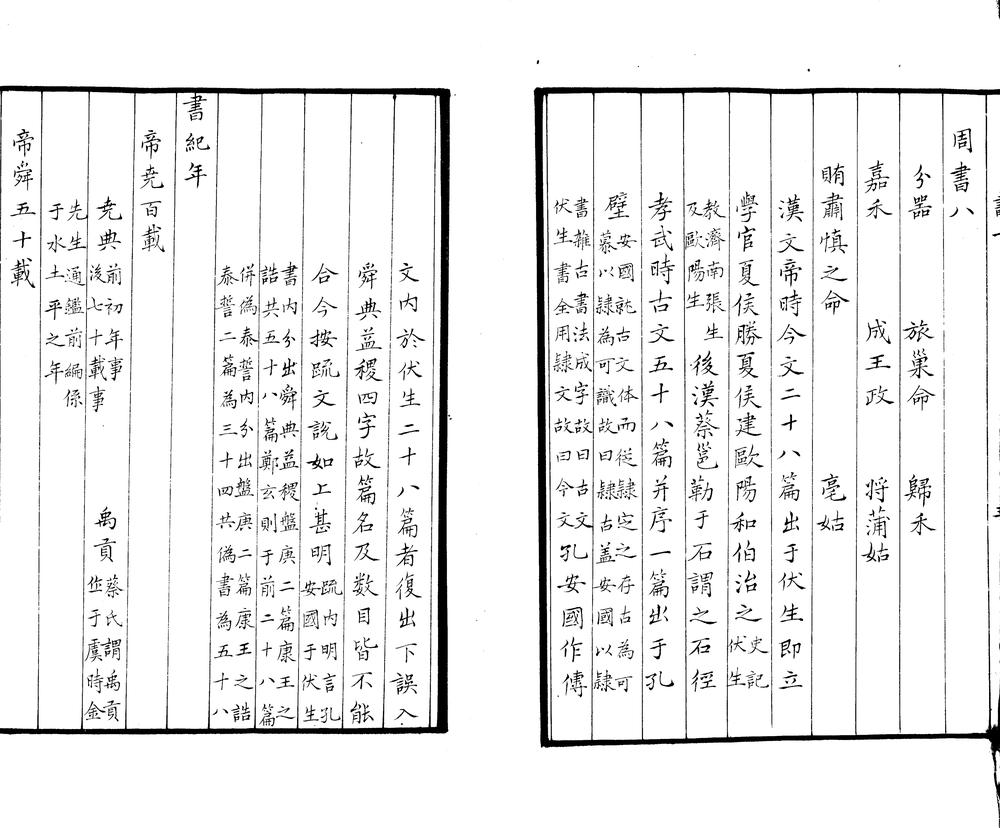 周書八
分器 旅巢命 歸禾
嘉禾 成王政 将蒲姑
賄肅慎之命 亳姑
漢文帝時今文二十八篇出于伏生即立
學官夏侯勝夏侯建歐陽和伯治之史記伏生
教濟南張生及歐陽生後漢蔡邕勒于石謂之石徑
孝武時古文五十八篇并序一篇出于孔
壁安國就古文体而従隷定之存古為可慕以隷為可識故曰隷古盖安國以隷
書雜古書法成字故曰古文伏生書全用隷文故曰今文孔安國作傳
文内於伏生二十八篇者復出下誤入
舜典益稷四字故篇名及数目皆不能
合今按疏文說如上甚明疏内明言孔安國于伏生
書内分出舜典益稷盤庚二篇康王之誥共五十八篇鄭玄則于前二十八篇
併偽泰誓内分出盤庚二篇康王之誥泰誓二篇為三十四共偽書為五十八
書紀年
帝尭百載
尭典前初年事後七十載事 禹貢蔡氏謂禹貢作于虞時金
先生通鑑前編係于水土平之年
帝舜五十載